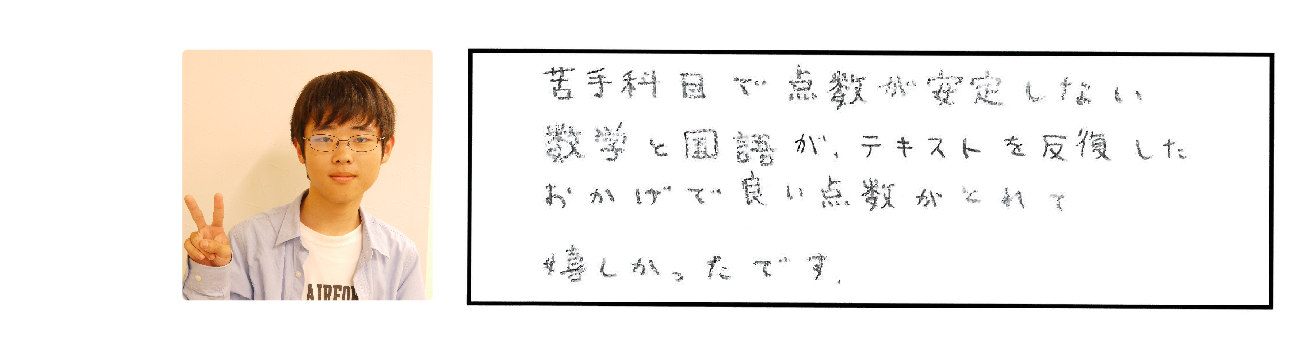 苦手科目で点数が安定しない
数学と国語が、テキストを反復した
おかげで良い点数がとれて
嬉しかったです。